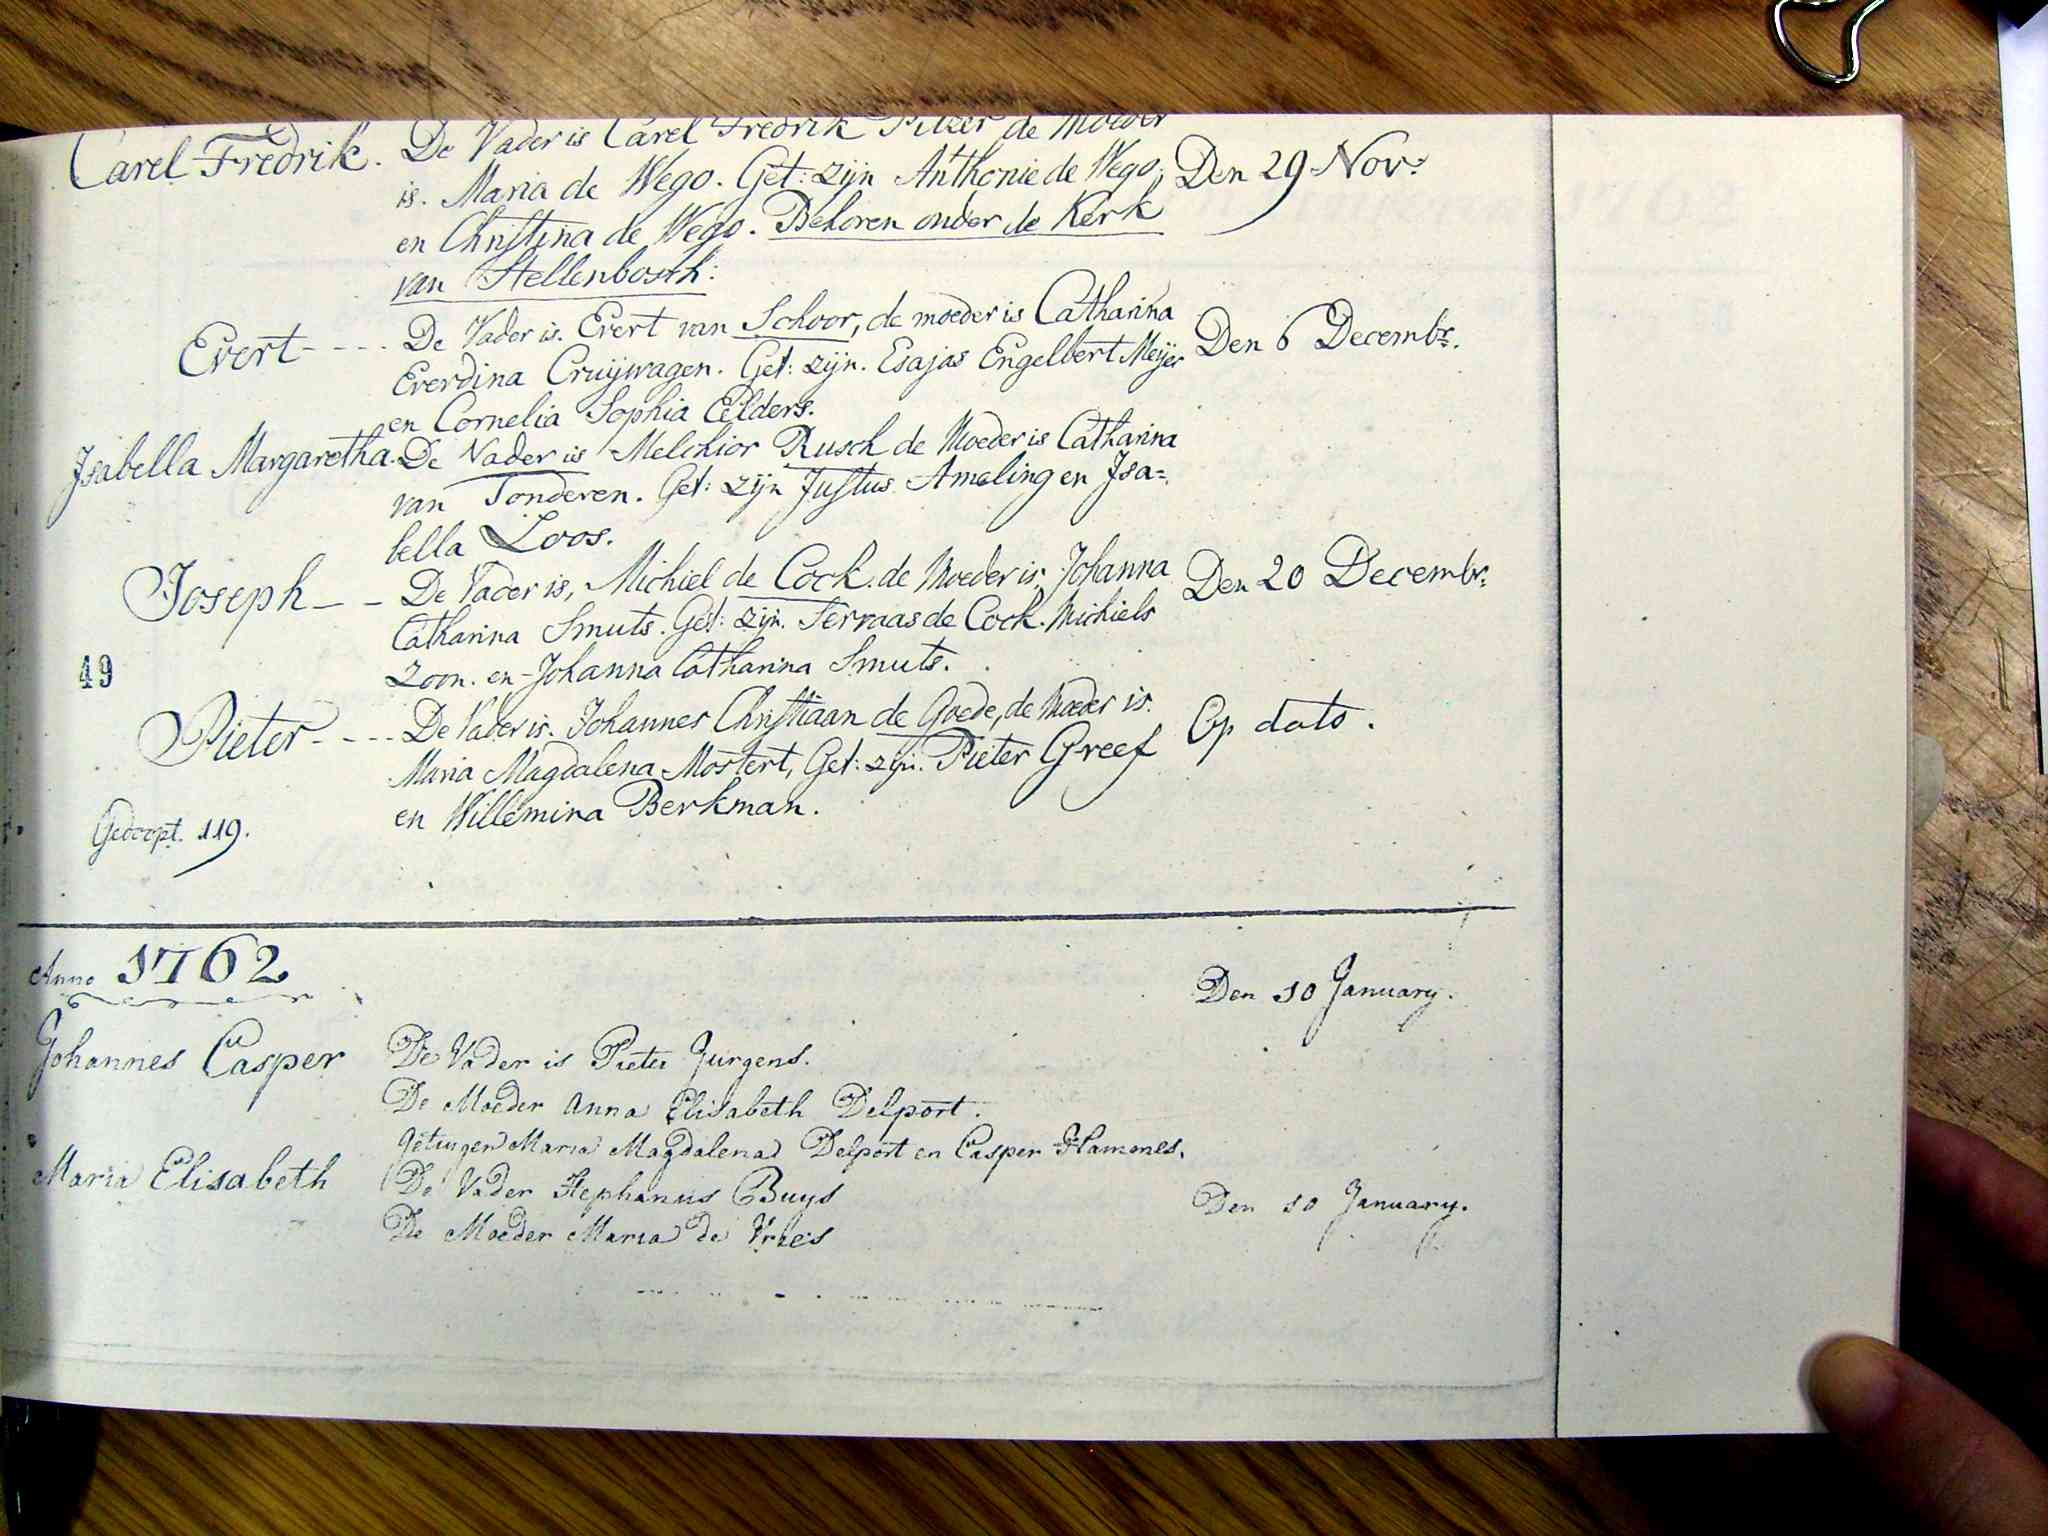 Carel Fredrik. De Vader is Carel Fredrik Pitzer de Moeder
is. Maria de Wego. Get: zijn Anthonie de Wego, Den 29 Nov:
en Christina de Wego. Behoren onder de Kerk
van Stellenbosch:
Evert - - - - De Vader is. Evert van Schoor, de moeder is Catharina Den 6 Decembr.
Everdina Cruijwagen. Get: zijn. Esajas Engelbert Meijer
en Cornelia Sophia Eelders.
Isabella Margaretha. De Vader is Melchior Rusch de Moeder is Catharina
van Tonderen. Get: zijn Justus Ameling en Isa=
bella Loos.
Joseph - - De Vader is, Michiel de Cock. de Moeder is, Johanna Den 20 Decembr:
Catharina Smuts. Get: zijn. de Cock. Michiels
zoon. en Johanna Catharina Smuts.
49
Pieter - - - - De Vader is. Johannes Christiaan de Goede, de Moeder is. Op dato.
Maria Magdalena Mostert, Get: zijn. Pieter Greef
en Willemina Berkman.
Gedoopt. 119.
Anno 1762
Den 10 January.
Johannes Casper De Vader is Pieter Jurgens.
De Moeder Anna Elisabeth Delport.
Getuigen Maria Magdalena Delport en Casper Hammes.
Maria Elisabeth De Vader Stephanus Buys Den 10 January.
De Moeder Maria de Vries